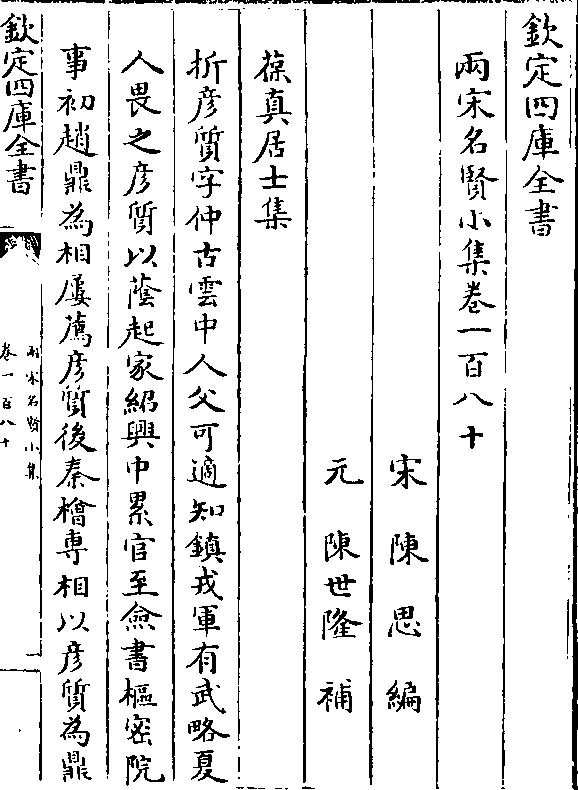 欽定四庫全書
兩宋名賢小集卷一百八十
宋陳思編
元陳世隆補
葆真居士集
折彦質字仲古雲中人父可適知鎮戎軍有武略夏
人畏之彦質以蔭起家紹興中累官至僉書樞密院
事初趙鼎為相屢薦彦質後秦檜専相以彦質為鼎
欽定四庫全書
兩宋名賢小集
卷一百八十